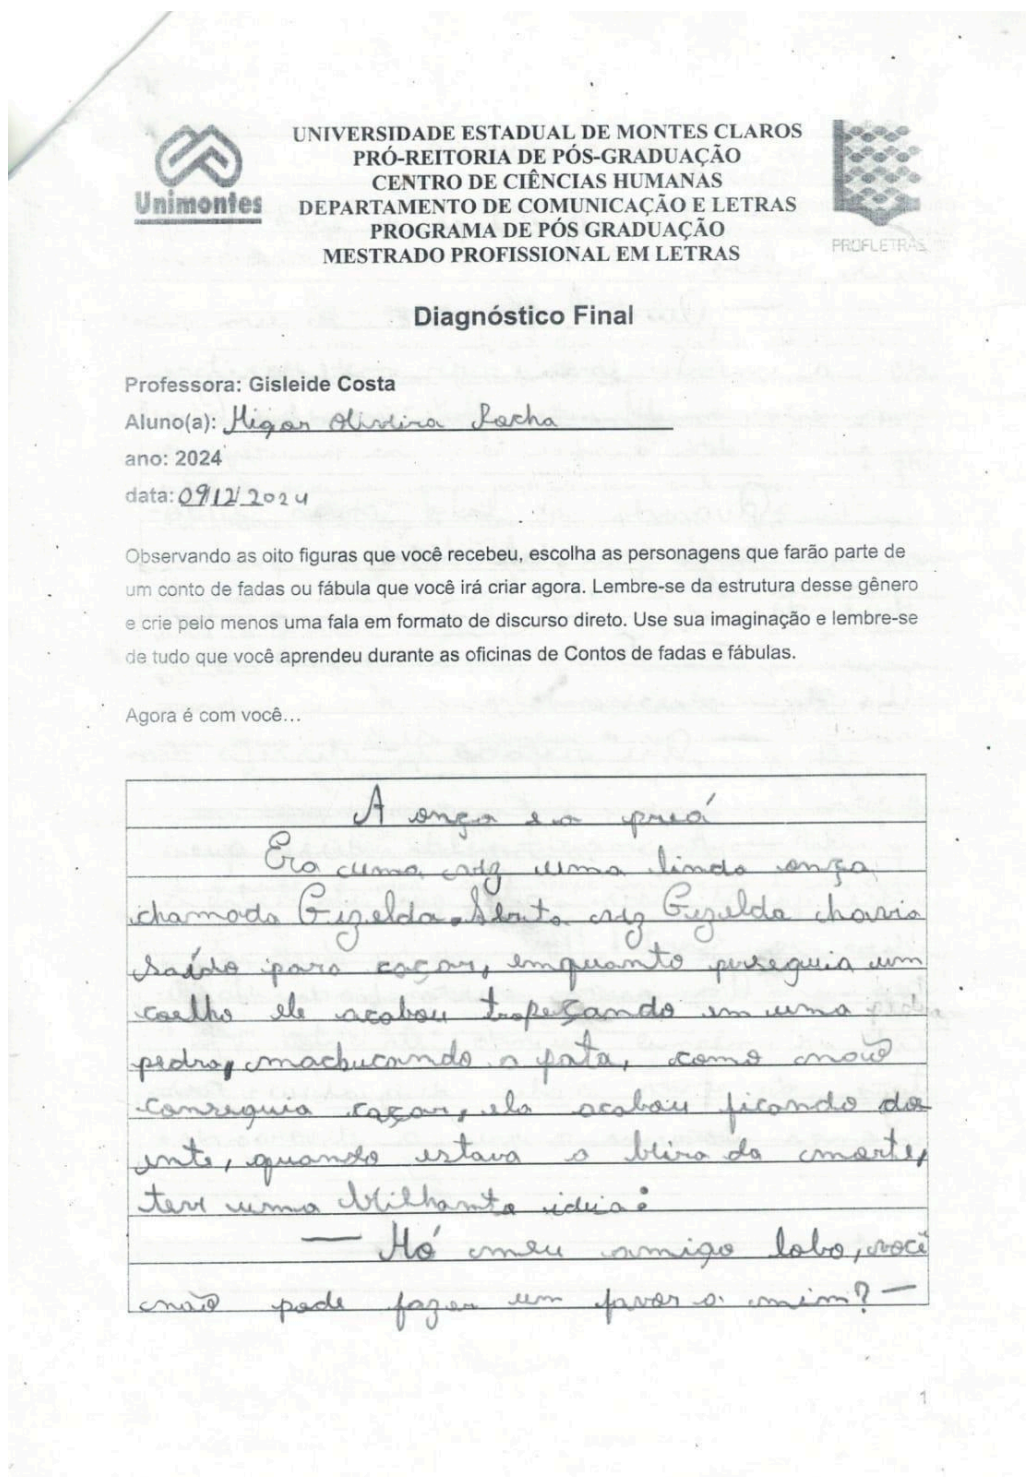 Unimontes
UNIVERSIDADE ESTADUAL DE MONTES CLAROS
PRÓ-REITORIA DE PÓS-GRADUAÇÃO
CENTRO DE CIÊNCIAS HUMANAS
DEPARTAMENTO DE COMUNICAÇÃO E LETRAS
PROGRAMA DE PÓS GRADUAÇÃO
MESTRADO PROFISSIONAL EM LETRAS
PROFLETRAS
Diagnóstico Final
Professora: Gisleide Costa
Aluno(a): Oliveira Rocha
ano: 2024
data: 09/12/2024
Observando as oito figuras que você recebeu, escolha as personagens que farão parte de
um conto de fadas ou fábula que você irá criar agora. Lembre-se da estrutura desse gênero
e crie pelo menos uma fala em formato de discurso direto. Use sua imaginação e lembre-se
de tudo que você aprendeu durante as oficinas de Contos de fadas e fábulas.
Agora é com você...
A onça e o preá
Era uma vez uma linda onça
chamada Gizelda. vez Gizelda havia
saído para caçar, enquanto perseguia um
coelho ele acabou tropeçando em uma
pedra, machucando a pata, como não
conseguia caçar, ela acabou ficando do
ente, quando estava a beira da morte,
teve uma brilhante ideia:
— Hó meu amigo lobo, você
não pode fazer um favor a mim? —
1